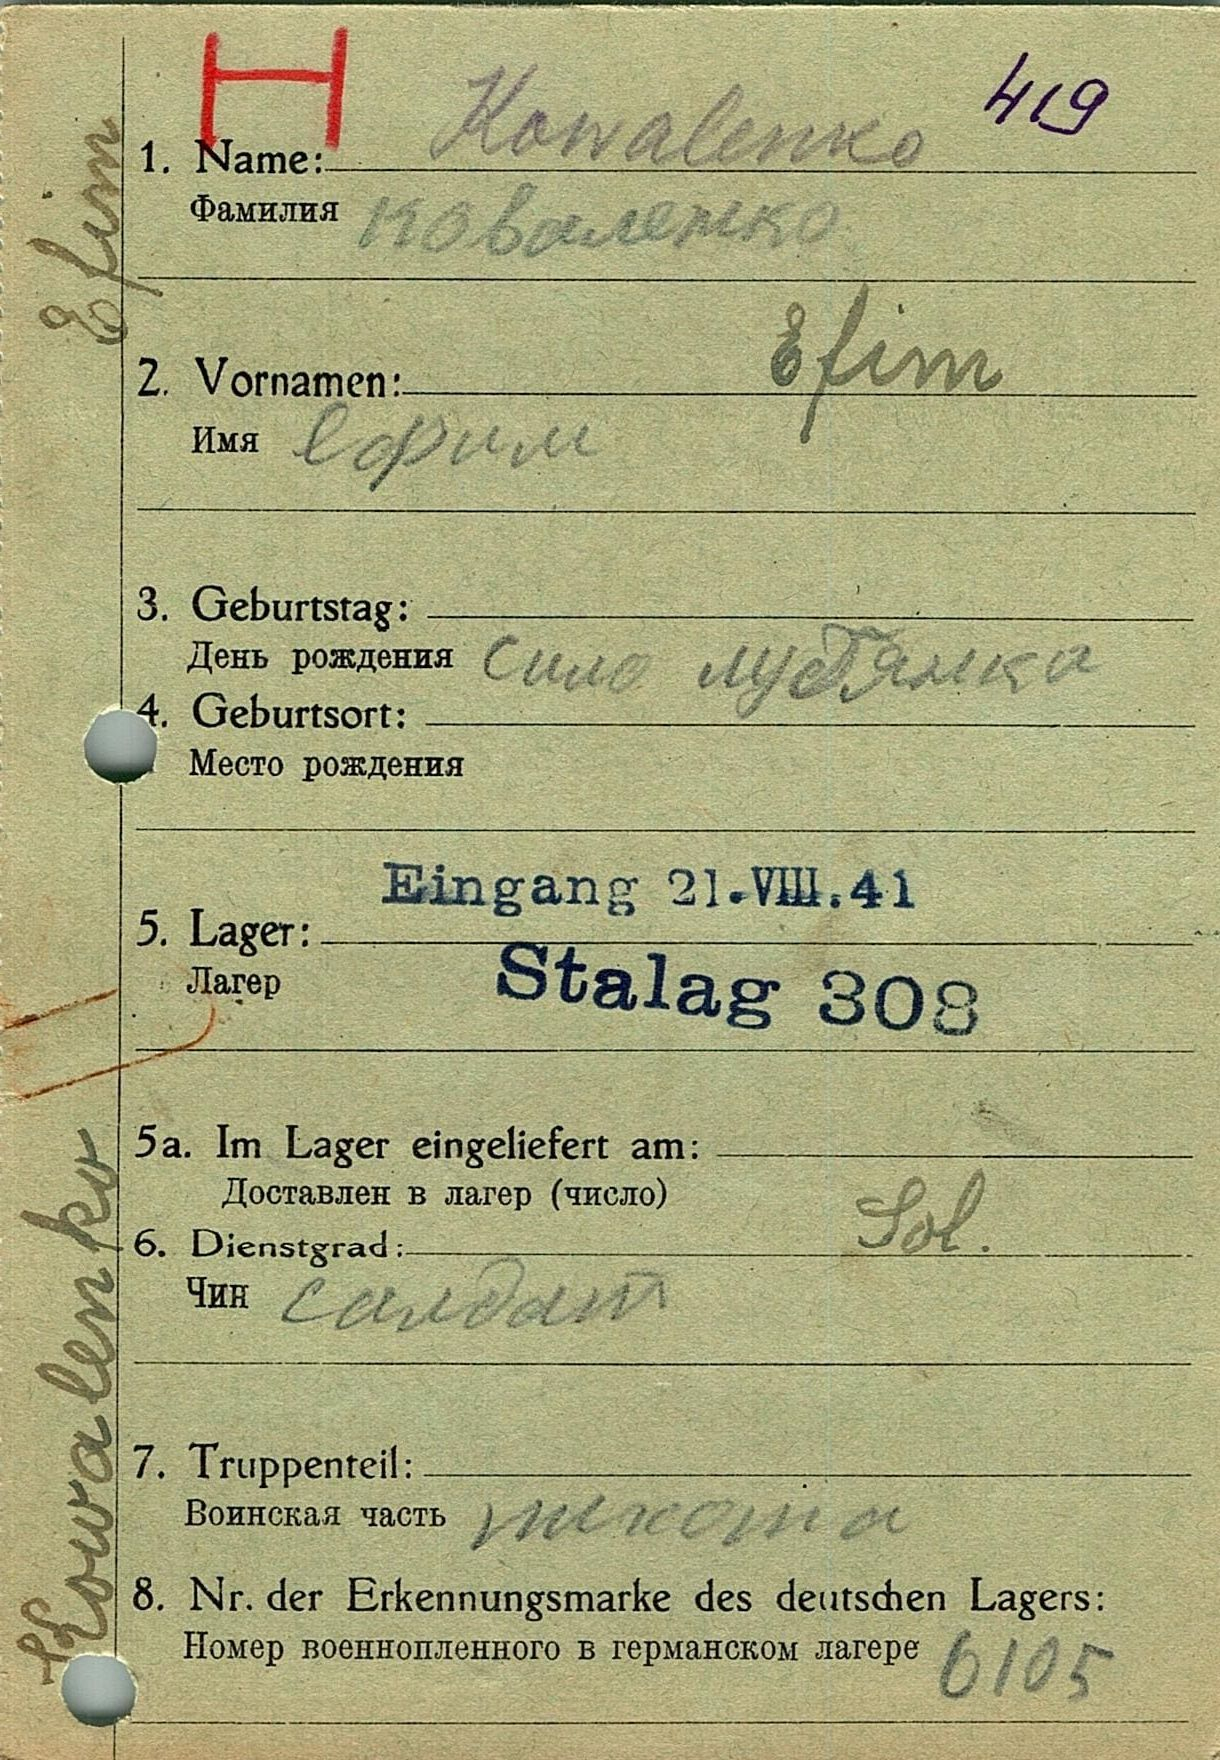 H
419
Kowalenko
1. Name:
Фамилия Коваленко
Efim
2. Vornamen:
Имя Ефим
3. Geburtstag:
День рождения Сило
4. Geburtsort:
Место рождения
Eingang 21.VIII.41
5. Lager:
Лагер Stalag 308
5a. Im Lager eingeliefert am:
Доставлен в лагер (число)
6. Dienstgrad: Sol.
Чин салдат
7. Truppenteil:
Воинская часть пихота
8. Nr. der Erkennungsmarke des deutschen Lagers:
Номер военнопленного в германском лагере 6105
Kowalenko Efim